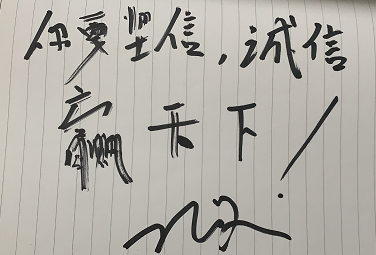 你要坚信,诚信
赢天下!